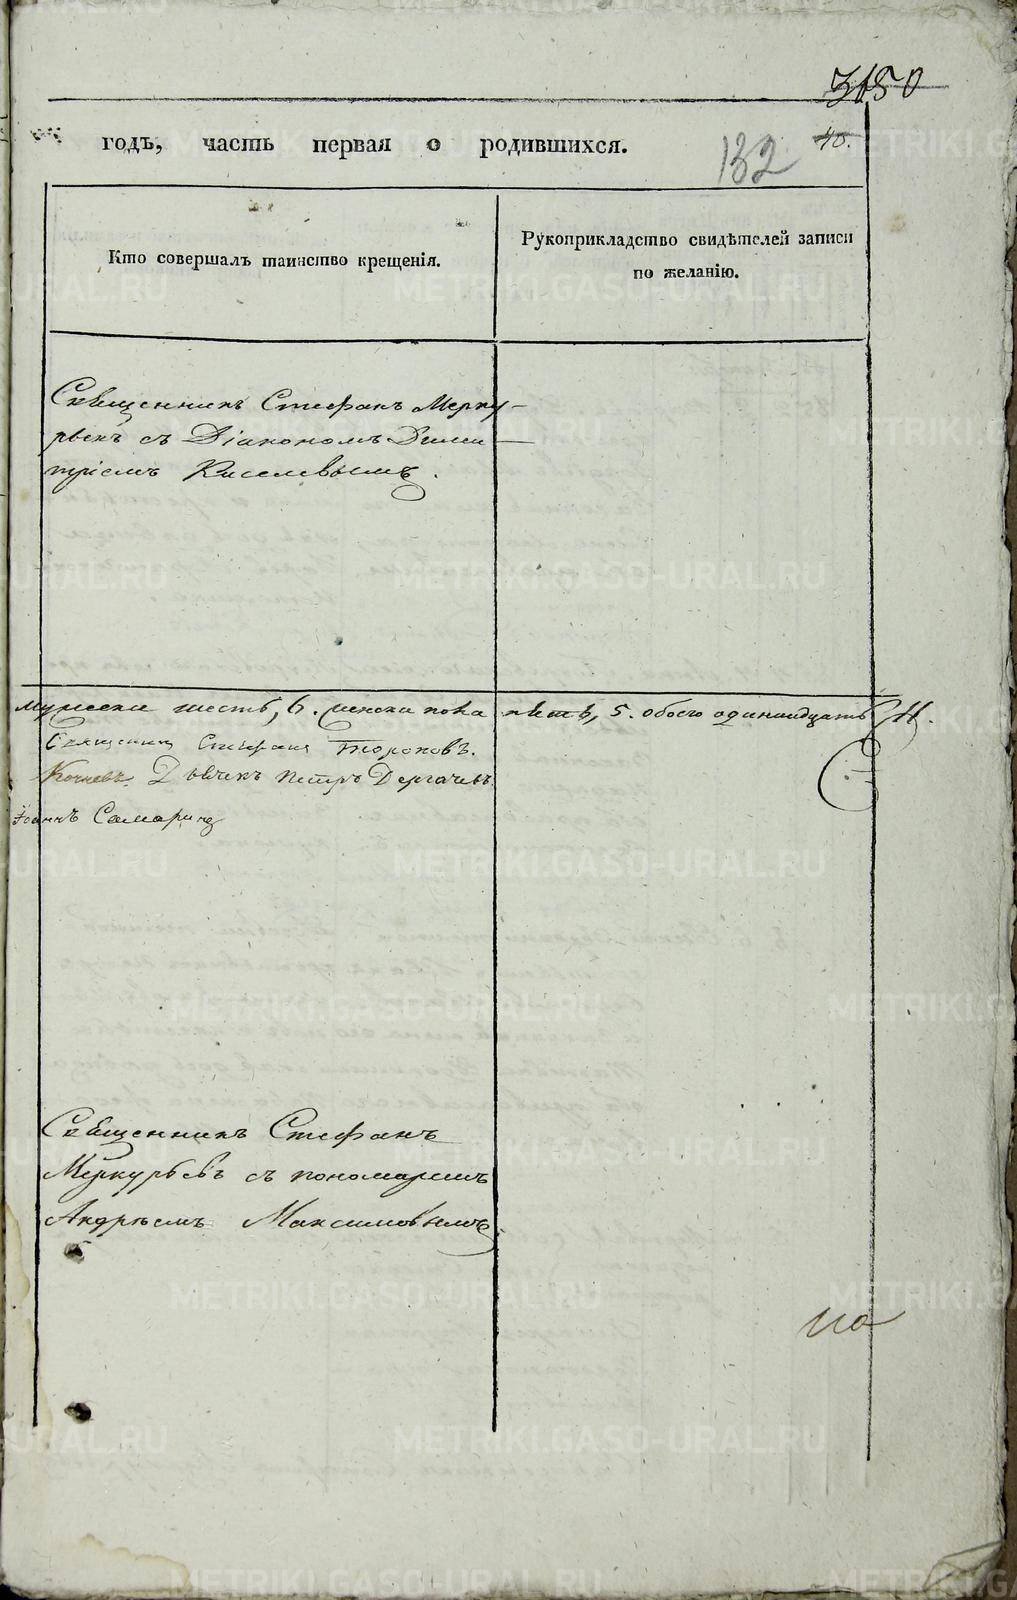 3150
годъ, часть первая о родившихся.
132
40.
Кто совершалъ таинство крещенія.
Рукоприкладство свидѣтелей записи
по желанію.
Священникъ Стефанъ Мерку-
рьевъ съ Діакономъ Дими-
тріемъ Киселевымъ.
мужеска шесть, 6. женска пола пять, 5. обоего одиннадцать, 11.
Священникъ Стефанъ Тороповъ.
Кочневъ. Дьячекъ Петръ Дергачевъ
Іоаннъ Самаринъ
Священникъ Стефанъ
Меркурьевъ съ пономаремъ
Андреемъ Максимовымъ
по
METRIKI.GASO-URAL.RU